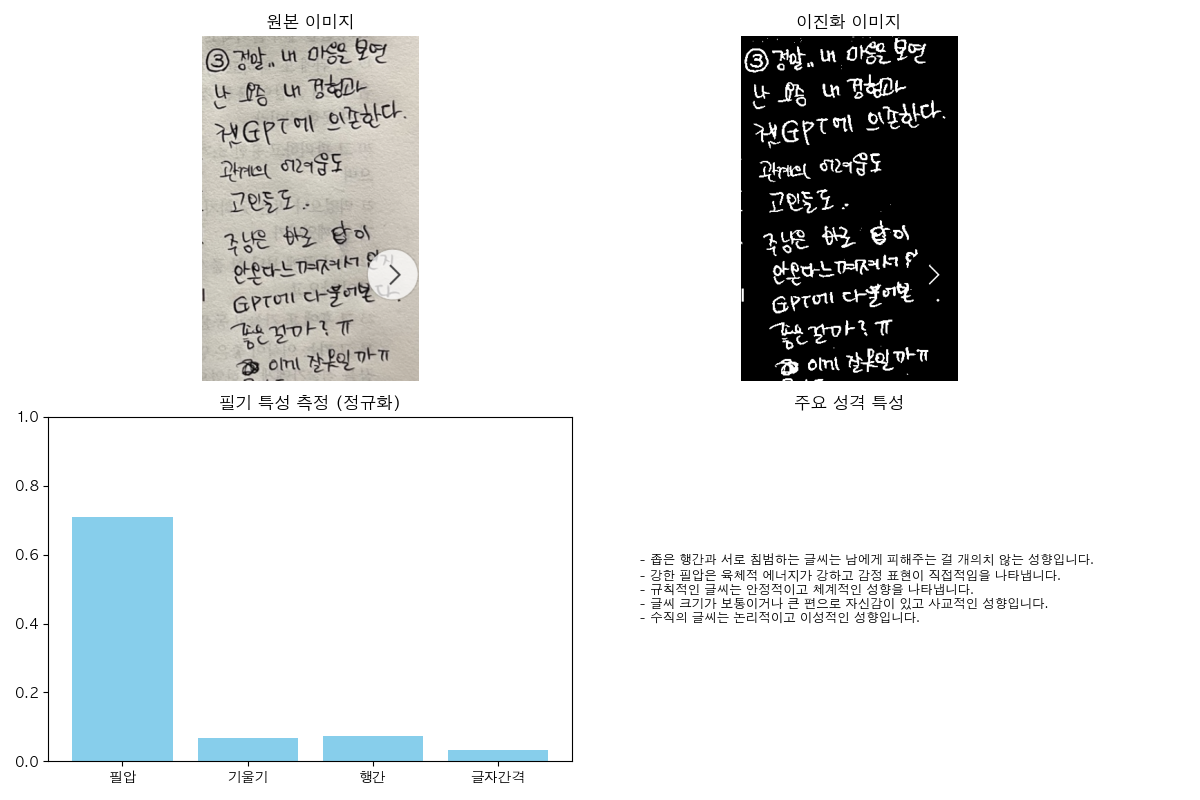 원본 이미지
이진화 이미지
③ 정말.. 내 마음을 보면
난 요즘 내 경험과
챗GPT에 의존한다.
관계의 어려움도
고민들도..
주남은 바로 답이
안온다느껴져서
GPT에 다 물어본다.
좋은걸까? ㅠ
이게 잘못일까ㅠ
③ 정말.. 내 마음을 보면
난 요즘 내 경험과
챗GPT에 의존한다.
관계의 어려움도
고민들도..
주남은 바로 답이
안온다느껴져서
GPT에 다 물어본
좋은걸까? ㅠ
이게 잘못일까ㅠ
필기 특성 측정 (정규화)
1.0
0.8
0.6
0.4
0.2
0.0
필압 기울기 행간 글자간격
주요 성격 특성
- 좁은 행간과 서로 침범하는 글씨는 남에게 피해주는 걸 개의치 않는 성향입니다.
- 강한 필압은 육체적 에너지가 강하고 감정 표현이 직접적임을 나타냅니다.
- 규칙적인 글씨는 안정적이고 체계적인 성향을 나타냅니다.
- 글씨 크기가 보통이거나 큰 편으로 자신감이 있고 사교적인 성향입니다.
- 수직의 글씨는 논리적이고 이성적인 성향입니다.